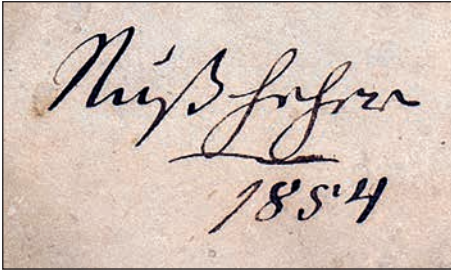 Nußheher
1854